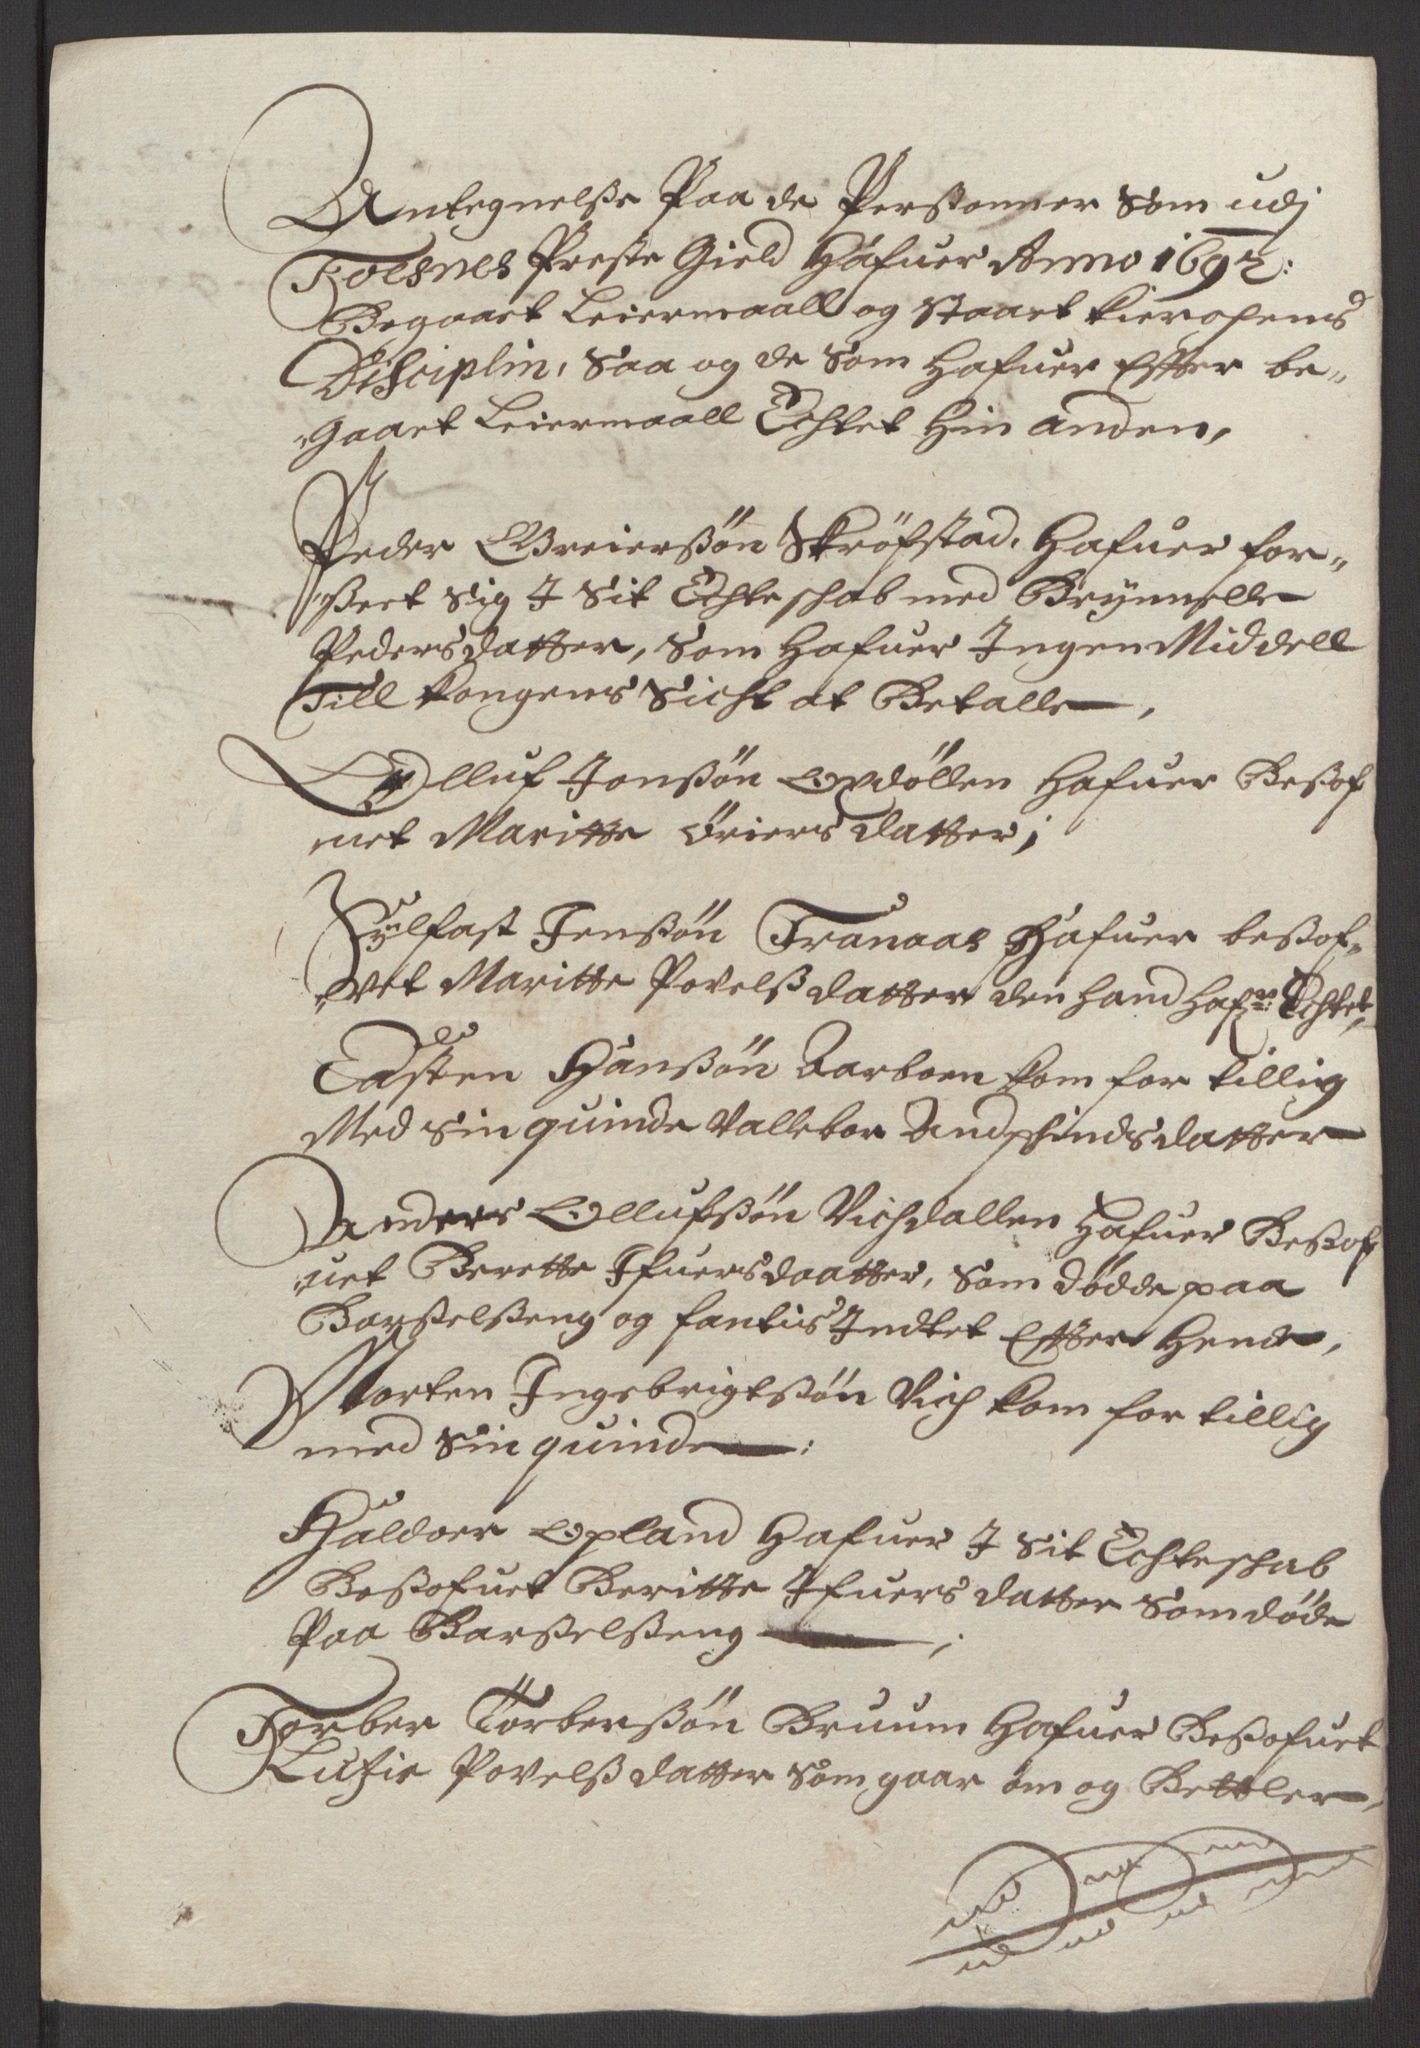 Antegnelse Paa de Perssonner Som udj
Foesnes Preste Gield Hafuer Anno 1692:
Begaaet Leiermaall og Staaet Kierchens
Disciplin, Saa og de Som Hafuer Effter be„
„gaaet Leiermaall Echtet Hin anden,
Peder Greierssøn Skröfstad, Hafuer for„
„sseet Sig J Sit Echteschab med Brynnelle
Peders datter, Som Hafuer Ingen Middell
Till Kongens Sicht at Betalle,
Olluf Jonssøn Opdøllen Hafuer Bessof
uet Maritte Griers datter;
Sylfast Jenssøn Tranaas Hafuer bessof„
„vet Maritte Povelss datter den hand Hafr: Echtet,
Casten Hanssøn Aarboen kom for tillig
Med Sin quinde Vallebor Amdschinds datter
Anders Ollufssøn Vichdallen Hafuer Bessof
„uet Berette Ifuersdaatter, Som dødde paa
Barsselsseng og fantis Indtet Effter Hende,
Morten Ingebrigtssøn Vich kom for tillig
med Sin quinde:
Haldoer Opland Hafuer J Sit Echteschab
Bessofuet Beritte Ifuers datter Som døde
Paa Barsselsseng;
Torber Törberssøn Bruum Hafuer Bessofuet
Luzie Povelss datter Som gaar om og Bettler,